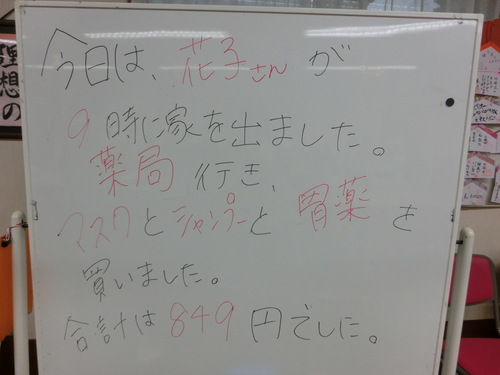 今日は、花子さんが
9時に家を出ました。
薬局 行き、
マスクとシャンプーと 胃薬を
買いました。
合計は849円でした。
理想の